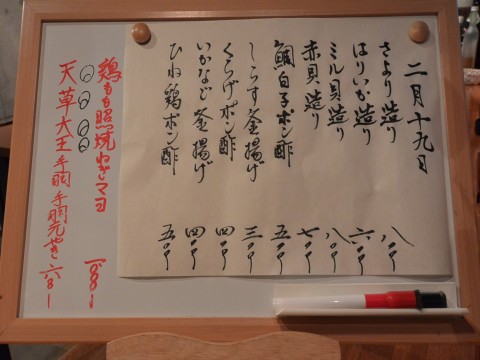 二月十九日
さより造り 八〇〇
はりいか造り 六〇〇
ミル貝造り 八〇〇
赤貝造り 七〇〇
鯛白子ポン酢 五〇〇
しらす釜揚げ 三〇〇
くらげポン酢 四〇〇
いかなご釜揚げ 四〇〇
ひね鶏ポン酢 五〇〇
鶏もも照焼ねぎマヨ
天草大王手羽手羽元やき 六八